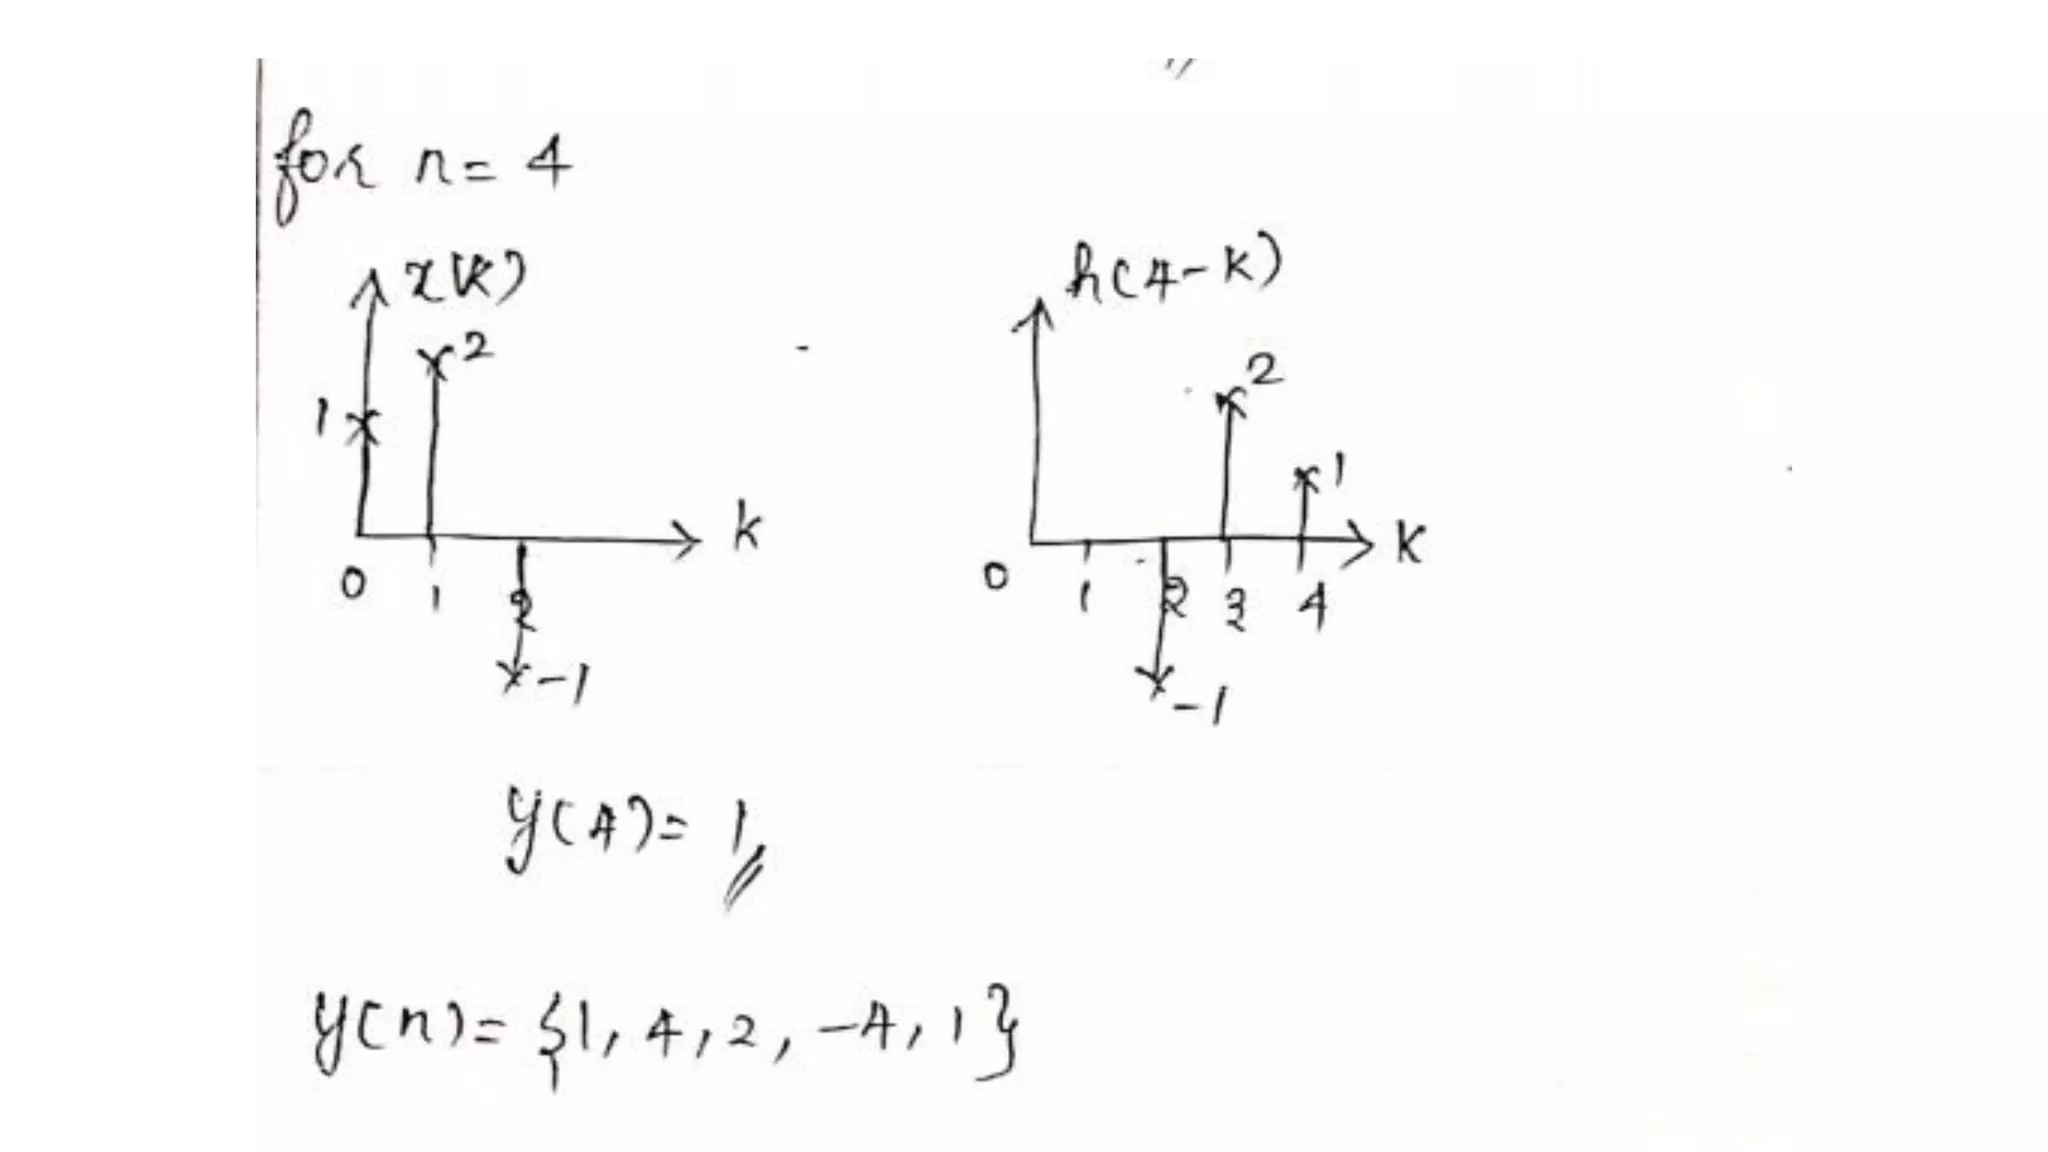 for n = 4
x(k)
h(4-k)
2
1
k
0 1 2
-1
2
1
k
0 1 2 3 4
-1
y(4) = 1
y(n) = {1, 4, 2, -4, 1}